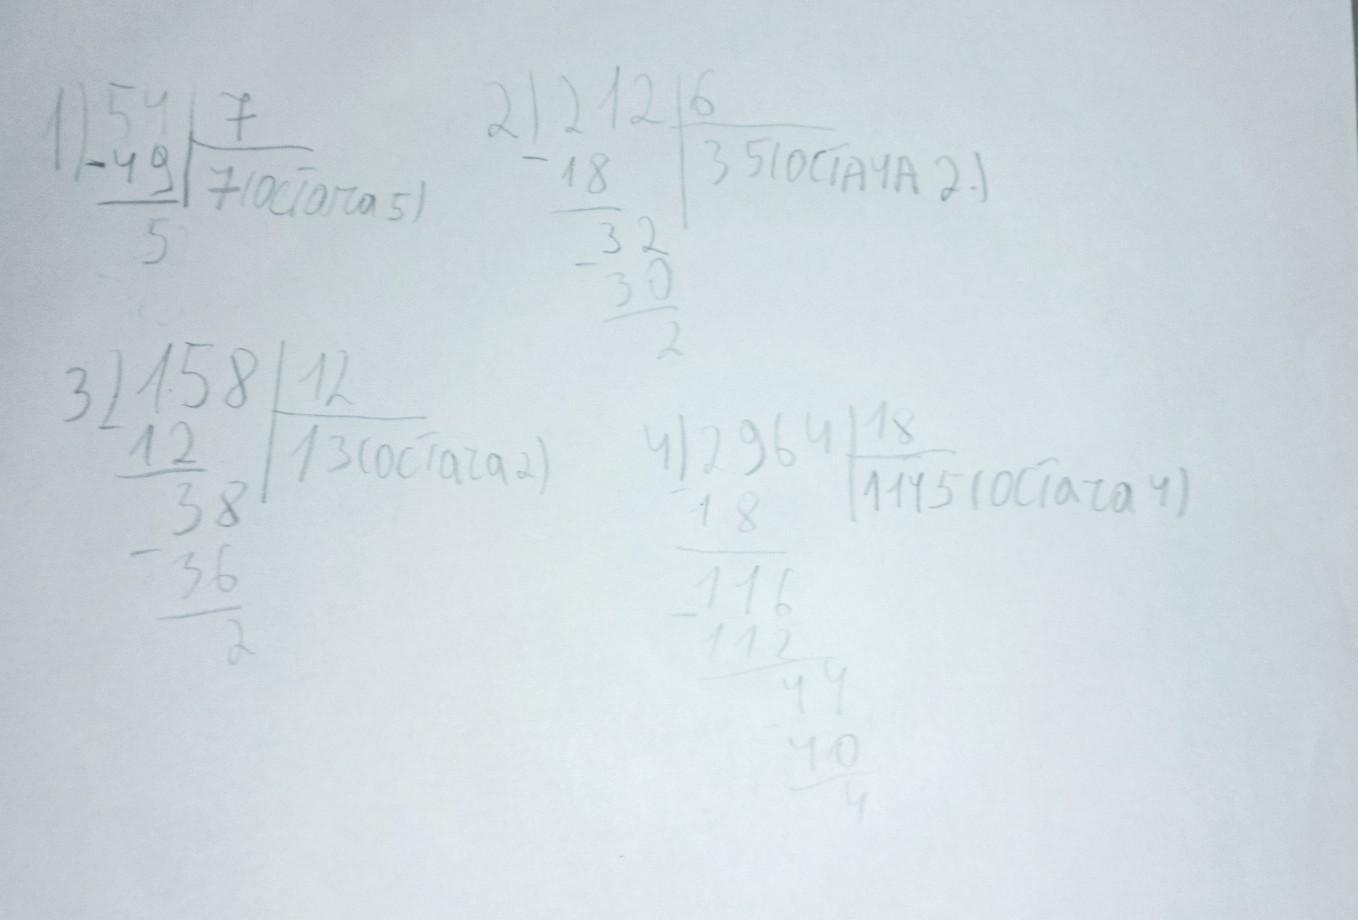 1) 54 | 7
-49 | 7(остача 5)
5
2) 212 | 6
-18 | 35(ОСТАЧА 2.)
32
-30
2
3) 158 | 12
12 | 13(остача 2)
38
-36
2
4) 2964 | 18
-18 | 1145(остача 4)
116
-112
44
40
4